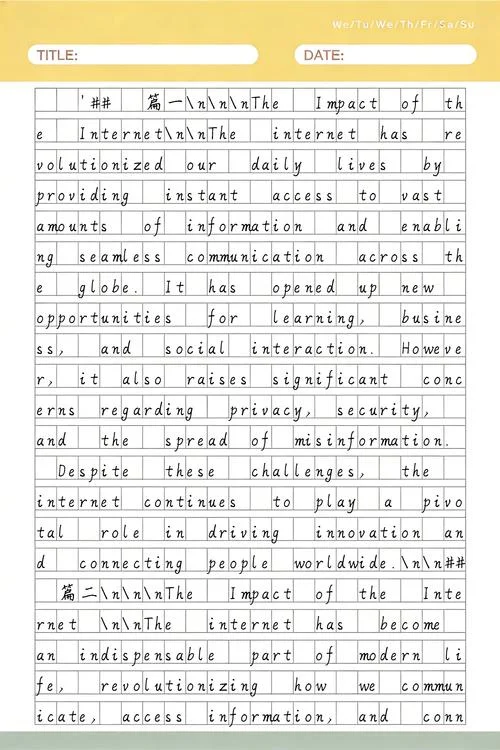 We/Tu/We/Th/Fr/Sa/Su
TITLE: DATE:
'## 篇一\n\n\nThe Impact of th
e Internet\n\nThe internet has re
volutionized our daily lives by
providing instant access to vast
amounts of information and enabli
ng seamless communication across th
e globe. It has opened up new
opportunities for learning, busine
ss, and social interaction. Howeve
r, it also raises significant conc
erns regarding privacy, security,
and the spread of misinformation.
Despite these challenges, the
internet continues to play a pivo
tal role in driving innovation an
d connecting people worldwide.\n\n##
篇二\n\n\nThe Impact of the Inte
rnet \n\nThe internet has become
an indispensable part of modern li
fe, revolutionizing how we commun
icate, access information, and conn